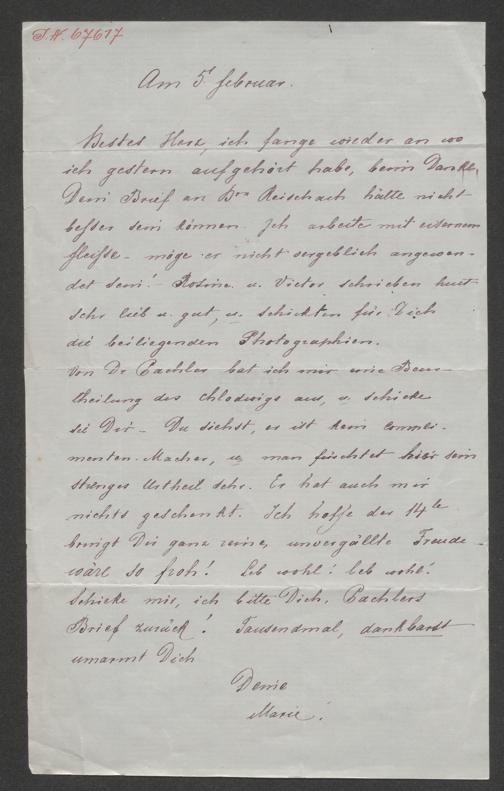 J.N. 67677
Am 5t februar.
Bestes Herz, ich fange wieder an wo
ich gestern aufgehört habe, beim Danke,
Dein Brief an Bon Reischach hätte nicht
beßer sein können. Ich arbeite mit eisernem
fleiße – möge er nicht vergeblich angewen-
det sein! – Rosine u. Victor schrieben heut
sehr lieb u. gut, u. schickten für Dich
die beiliegenden Photographien.
Von Dr Pachler bat ich mir eine Beur-
theilung des Chlodwigs aus, u. schicke
sie Dir – Du siehst, er ist kein Compli-
menten-Macher, u. man fürchtet hier sein
strenges Urtheil sehr. Er hat auch mir
nichts geschenkt. Ich hoffe der 14te
bringt Dir ganz reine, unvergällte Freude –
wäre so froh! Leb wohl! leb wohl!
Schicke mir, ich bitte Dich, Pachlers
Brief zurück! Tausendmal, dankbarst
umarmt Dich
Deine
Marie!